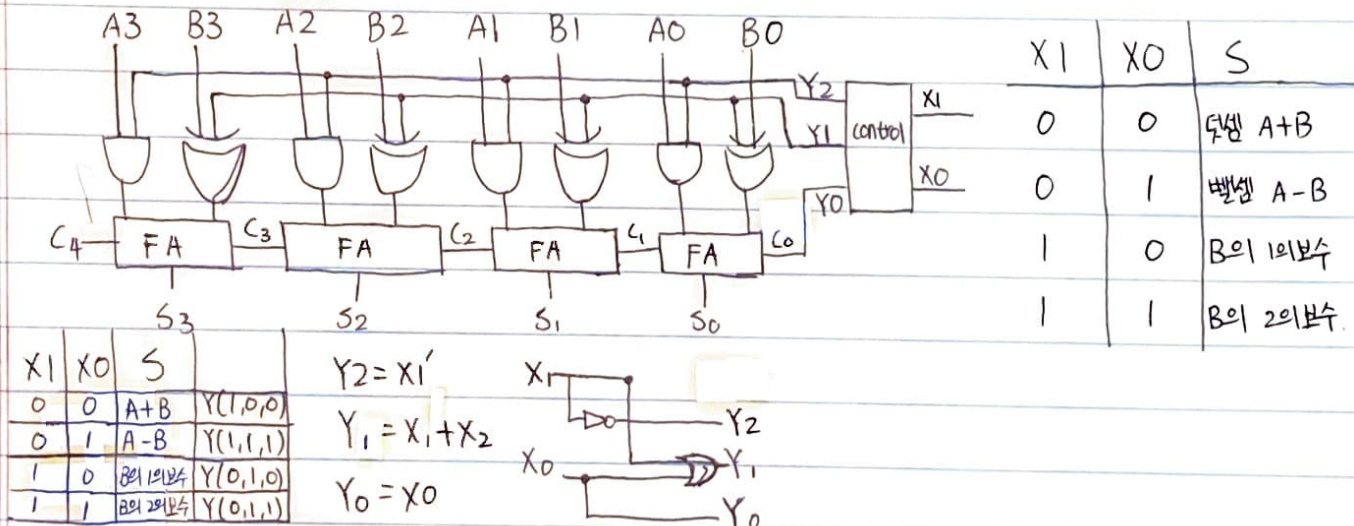 A3 B3 A2 B2 A1 B1 A0 B0
Y2
Y1
Y0
control
X1
X0
C4 FA C3 FA C2 FA C1 FA C0
S3 S2 S1 S0
X1 X0 S
0 0 덧셈 A+B
0 1 뺄셈 A-B
1 0 B의 1의보수
1 1 B의 2의보수
X1 X0 S
0 0 A+B Y(1,0,0)
0 1 A-B Y(1,1,1)
1 0 B의 1의보수 Y(0,1,0)
1 1 B의 2의보수 Y(0,1,1)
Y2=X1′
Y1=X1+X2
Y0=X0
X1
Y2
X0
Y1
Y0